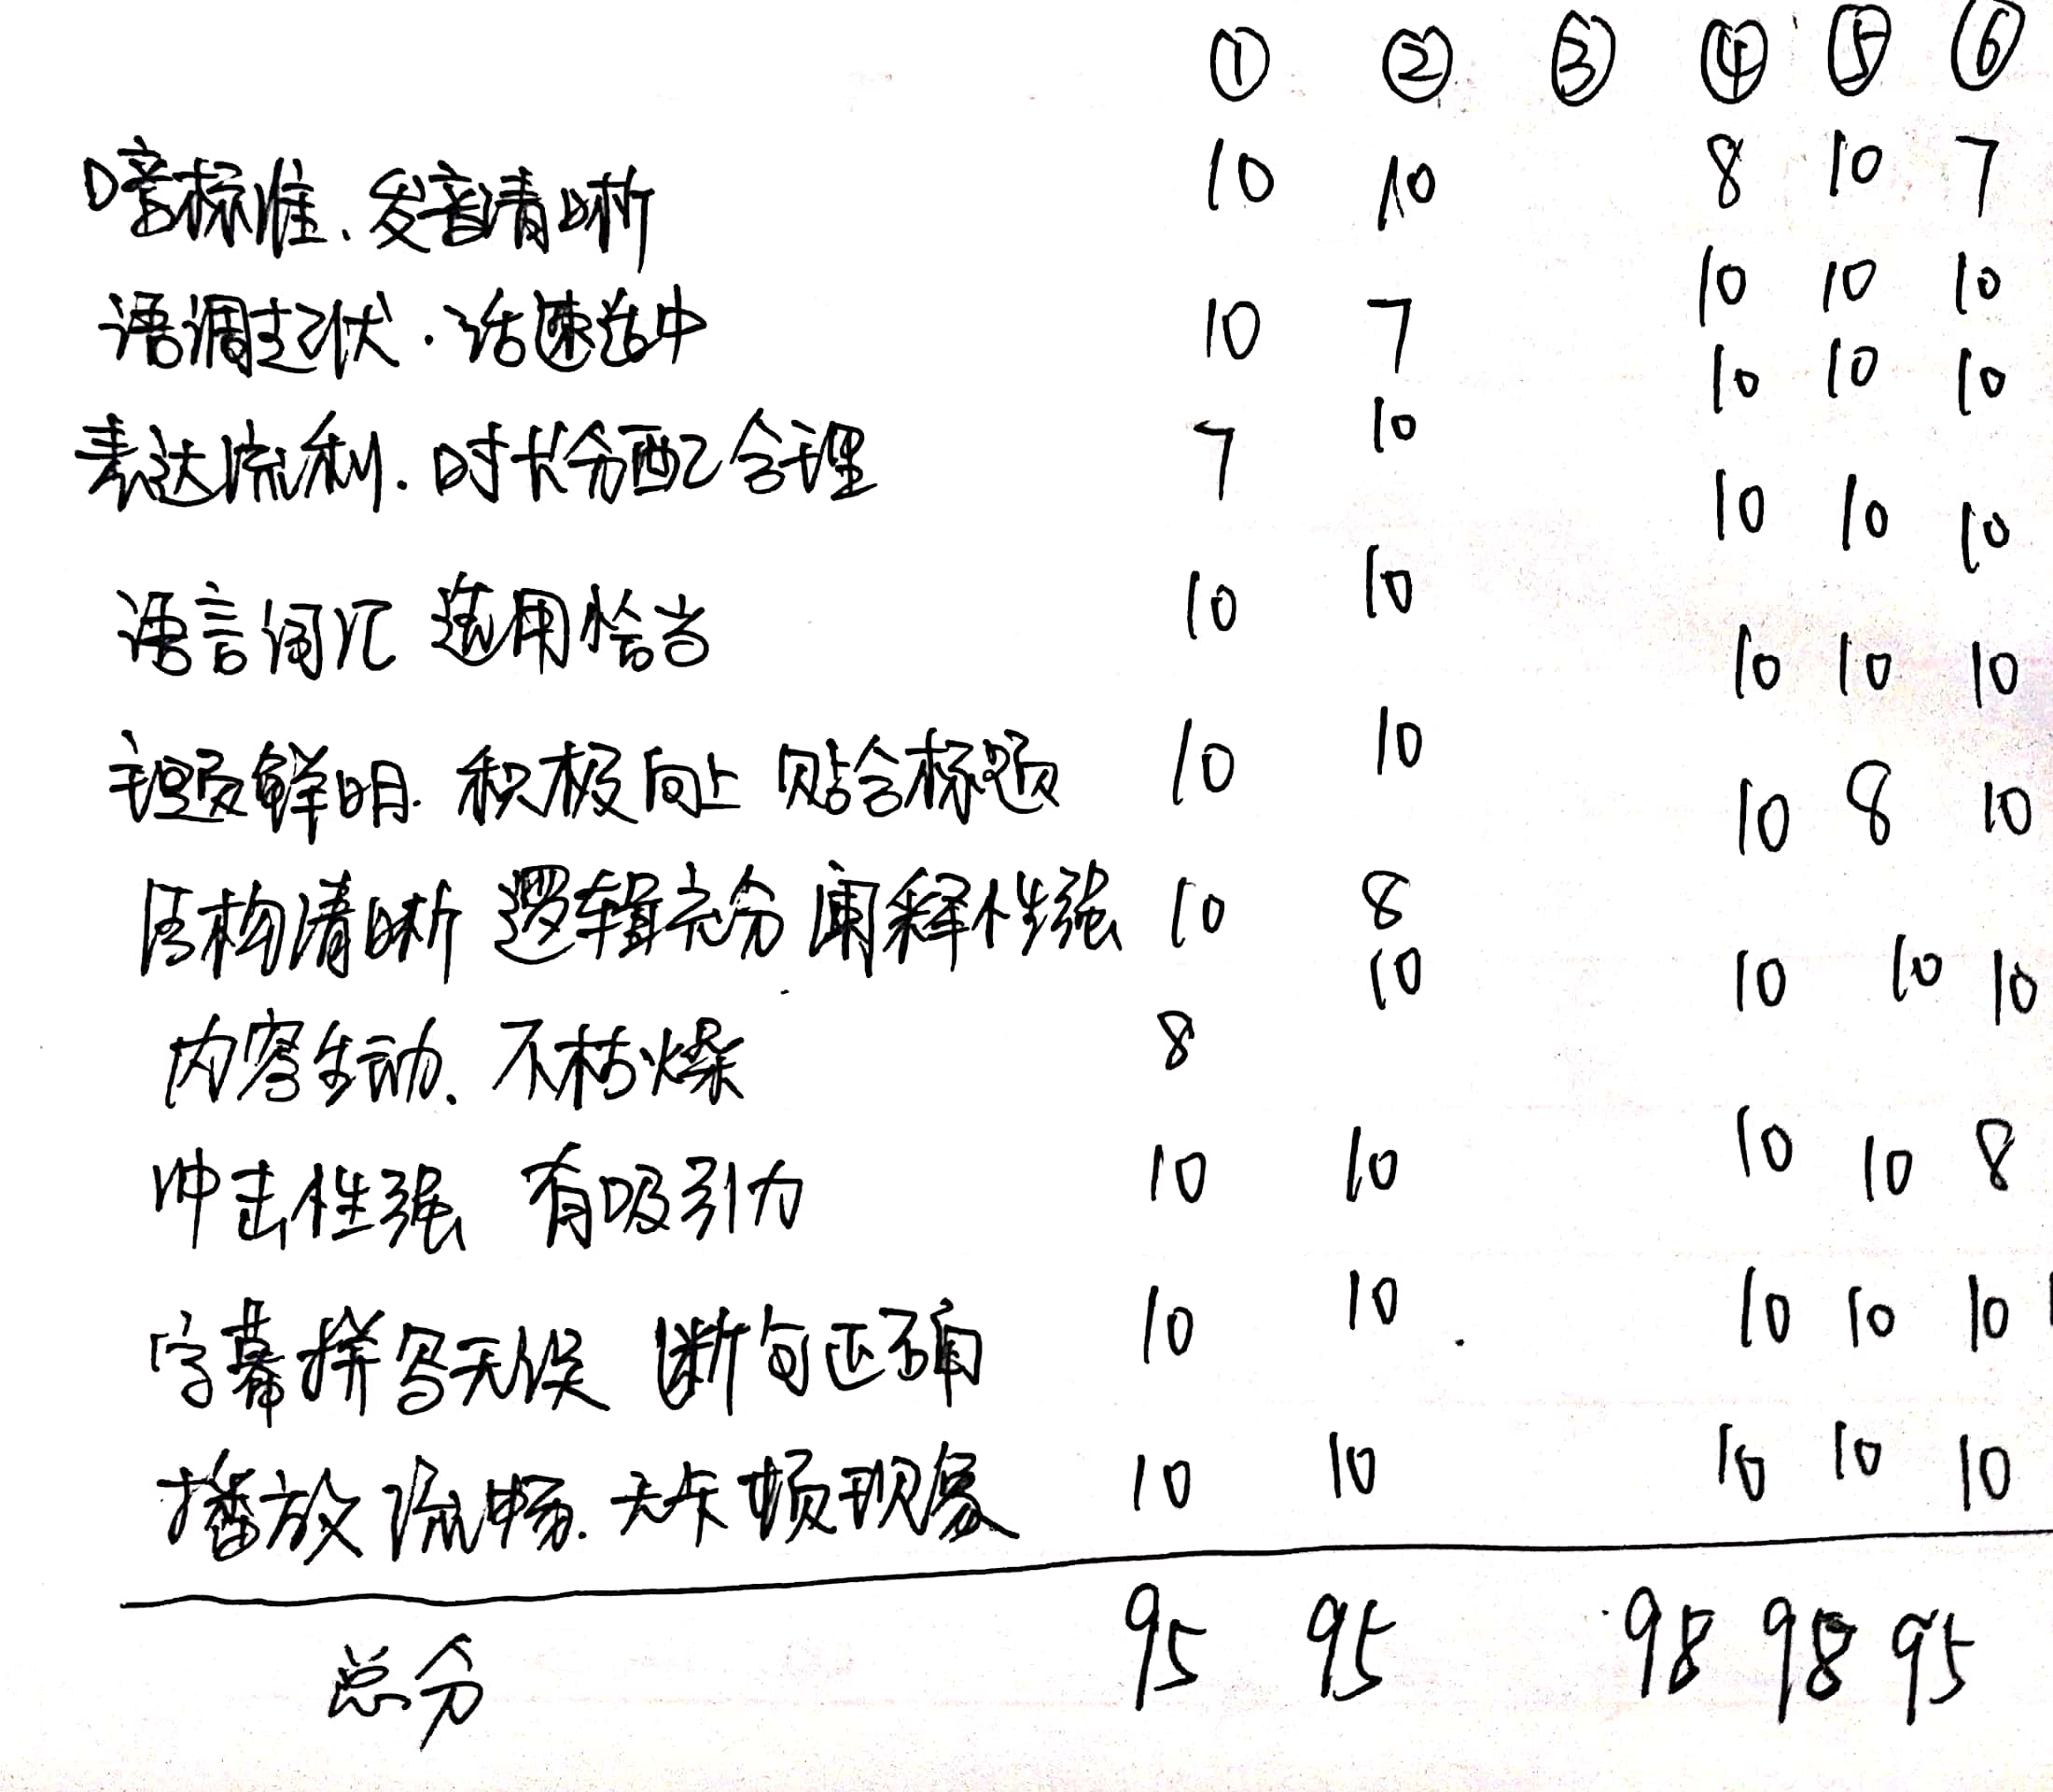 ① ② ③ ④ ⑤ ⑥
口音标准、发音清晰 10 10 8 10 7
语调起伏.话速适中 10 7 10 10 10
表达流利.时长分配合理 7 10 10 10 10
语言词汇 选用恰当 10 10 10 10 10
主题鲜明. 积极向上 贴合标题 10 10 10 10 10
结构清晰 逻辑充分 阐释性强 10 8 10 8 10
内容生动.不枯燥 8 10 10 10 10
冲击性强 有吸引力 10 10 10 10 8
字幕拼写无误 断句正确 10 10 10 10 10
播放流畅.无卡顿现象 10 10 10 10 10
总分 95 95 98 98 95